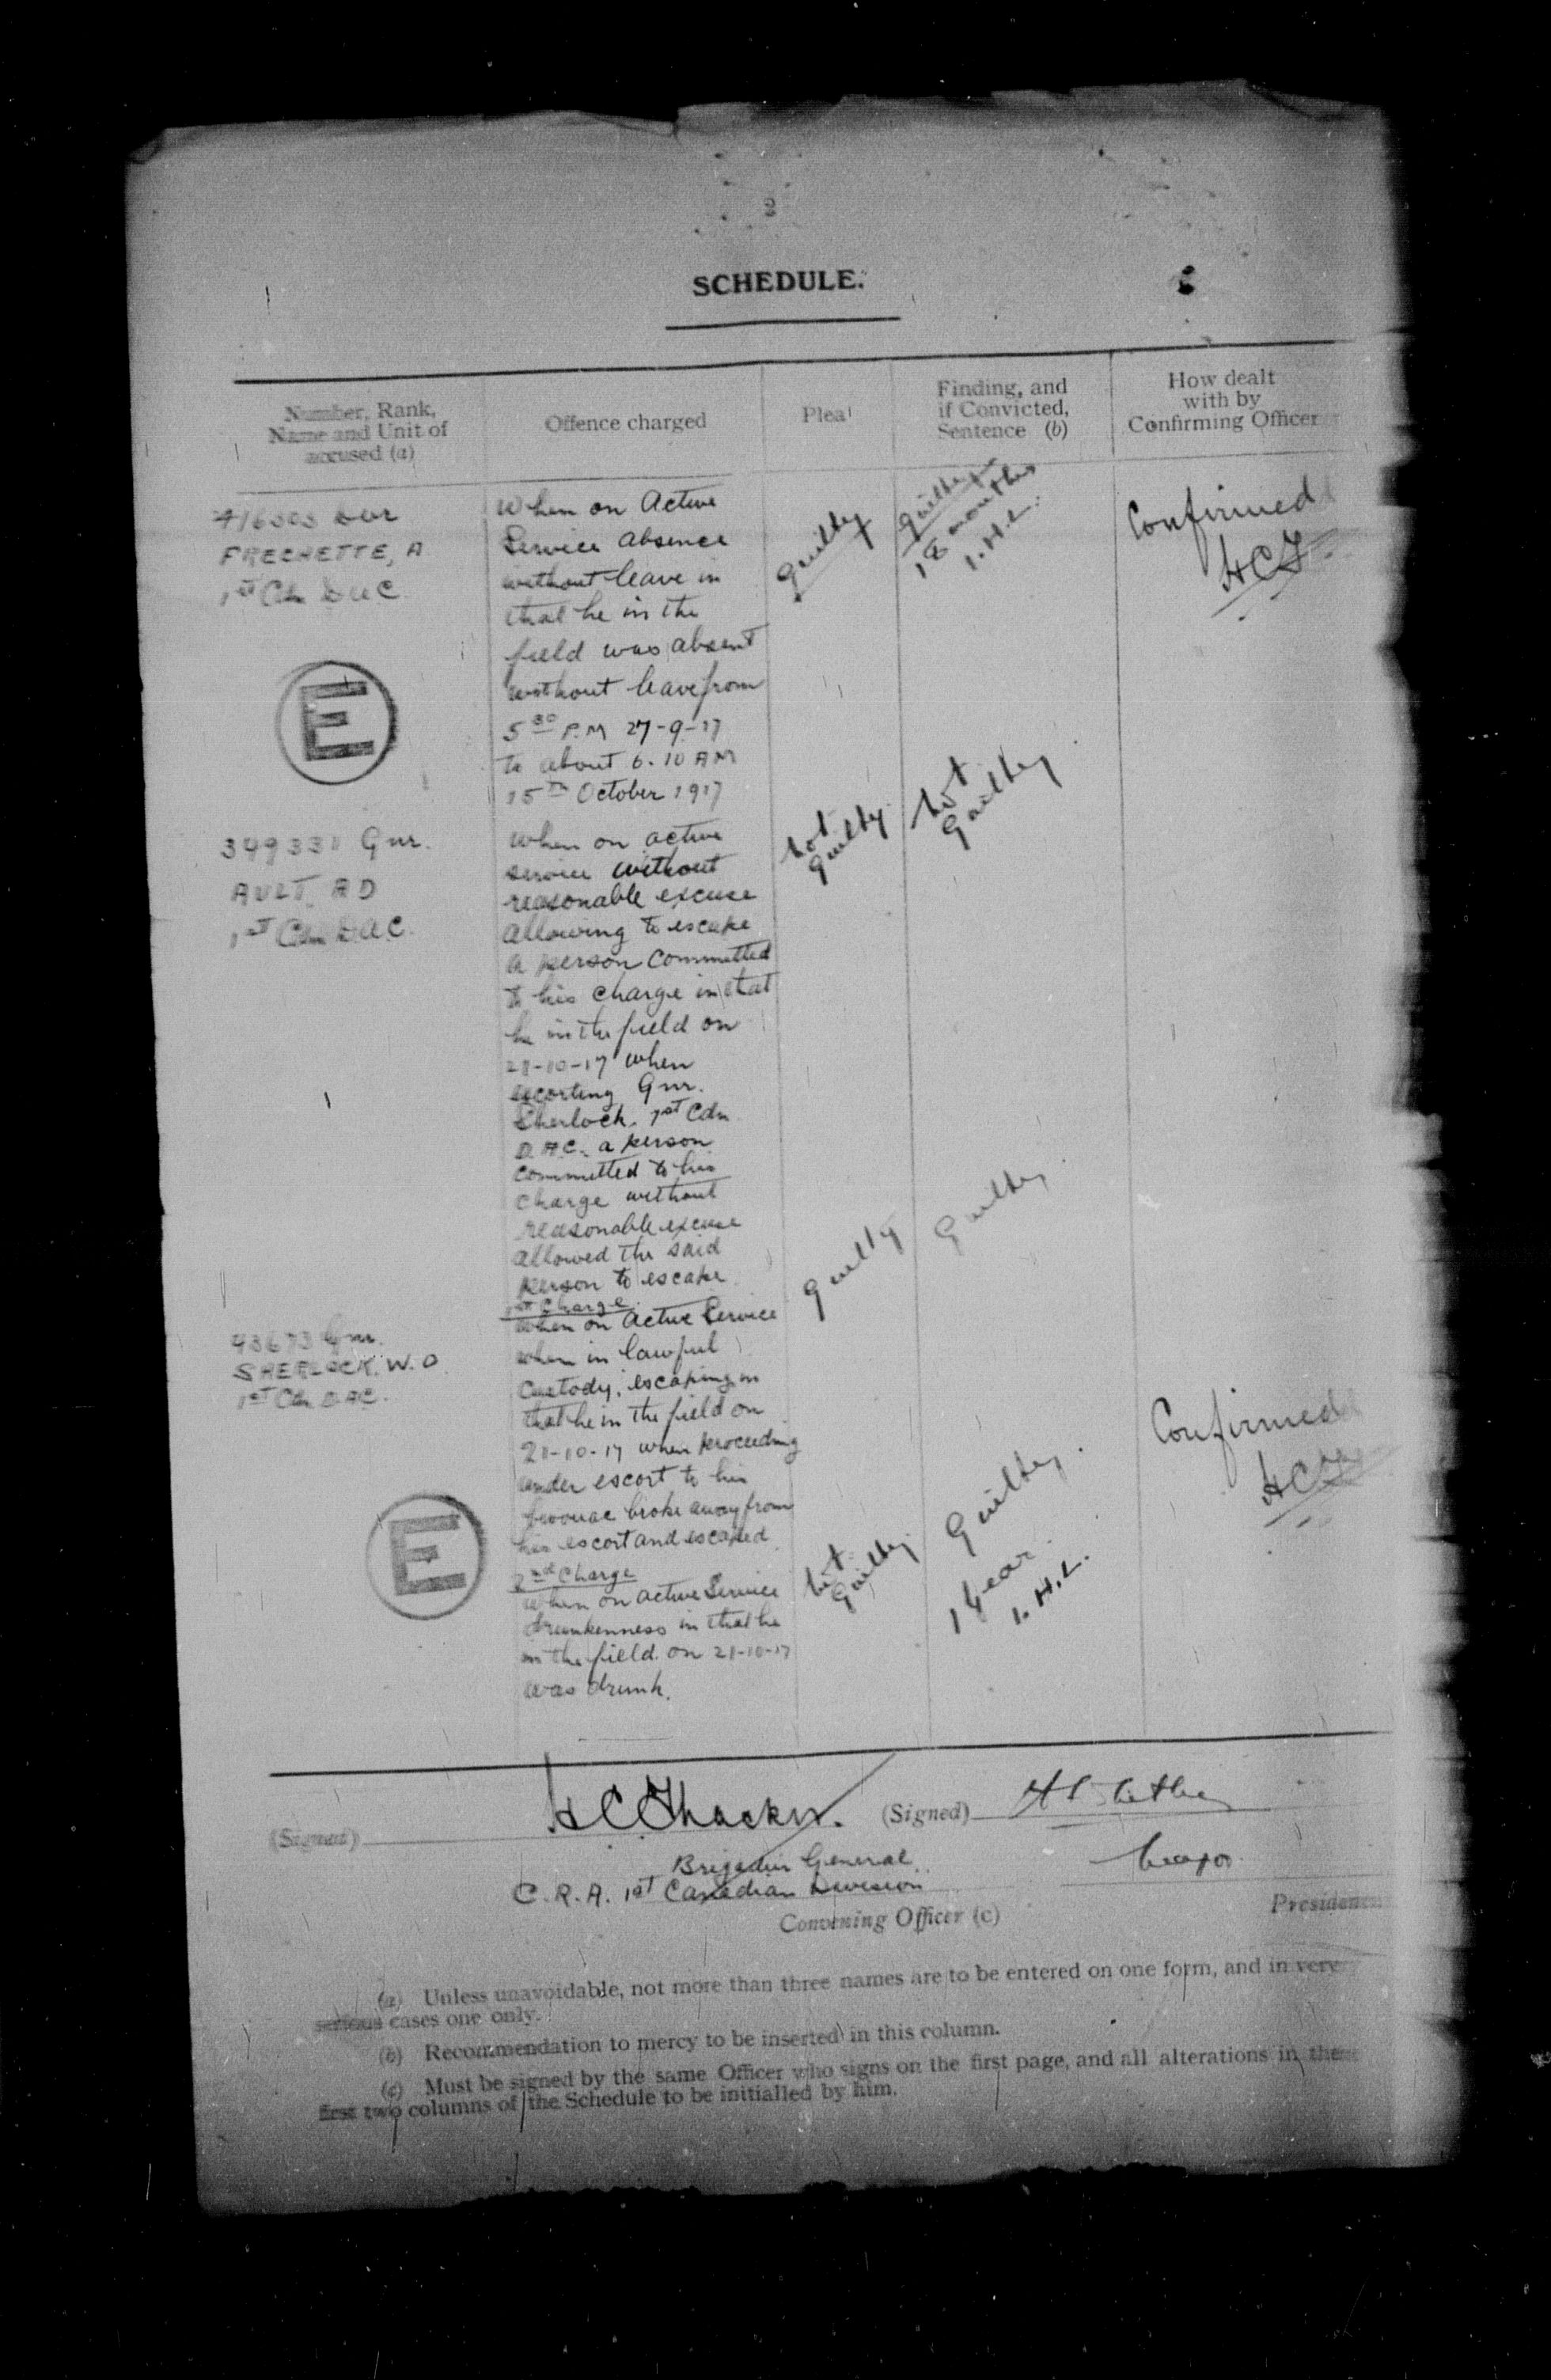 SCHEDULE.
Number, Rank,
Name and Unit of
accused (a)
Offence charged
Plea
Finding, and
if Convicted,
Sentence (b)
How dealt
with by
Confirming Officer
FRECHETTE, A
1st Cdn DAC
E
When on Active
Service absence
without leave in
that he in the
field was absent
without leave from
5 30 P.M 27-9-17
to about 6.10 AM
15th October 1917
Guilty
Guilty
18 months
I.H.L.
Confirmed
HCT
349331 Gnr.
AULT. RD
1st Cdn DAC.
When on active
service without
reasonable excuse
allowing to escape
a person committed
to his charge in that
he in the field on
21-10-17 when
escorting Gnr.
Sherlock. 1st Cdn
D.A.C. a person
committed to his
charge without
reasonable excuse
allowed the said
person to escape
not
guilty
not
guilty
43673 Gnr.
SHERLOCK. W.O
1st Cdn DAC.
E
1st Charge
When on Active Service
when in lawful
Custody, escaping in
that he in the field on
21-10-17 when proceeding
under escort to his
bivouac broke away from
his escort and escaped.
2nd Charge
When on active Service
drunkenness in that he
in the field on 21-10-17
was drunk.
guilty
Guilty
not
guilty
Guilty.
1 year
I.H.L.
Confirmed
HCT
(Signed)
HCThacker.
Brigadier General
C.R.A. 1st Canadian Division
Convening Officer (c)
(Signed)
Major
President
(a) Unless unavoidable, not more than three names are to be entered on one form, and in very
serious cases one only.
(b) Recommendation to mercy to be inserted in this column.
(c) Must be signed by the same Officer who signs on the first page, and all alterations in the
first two columns of the Schedule to be initialled by him.